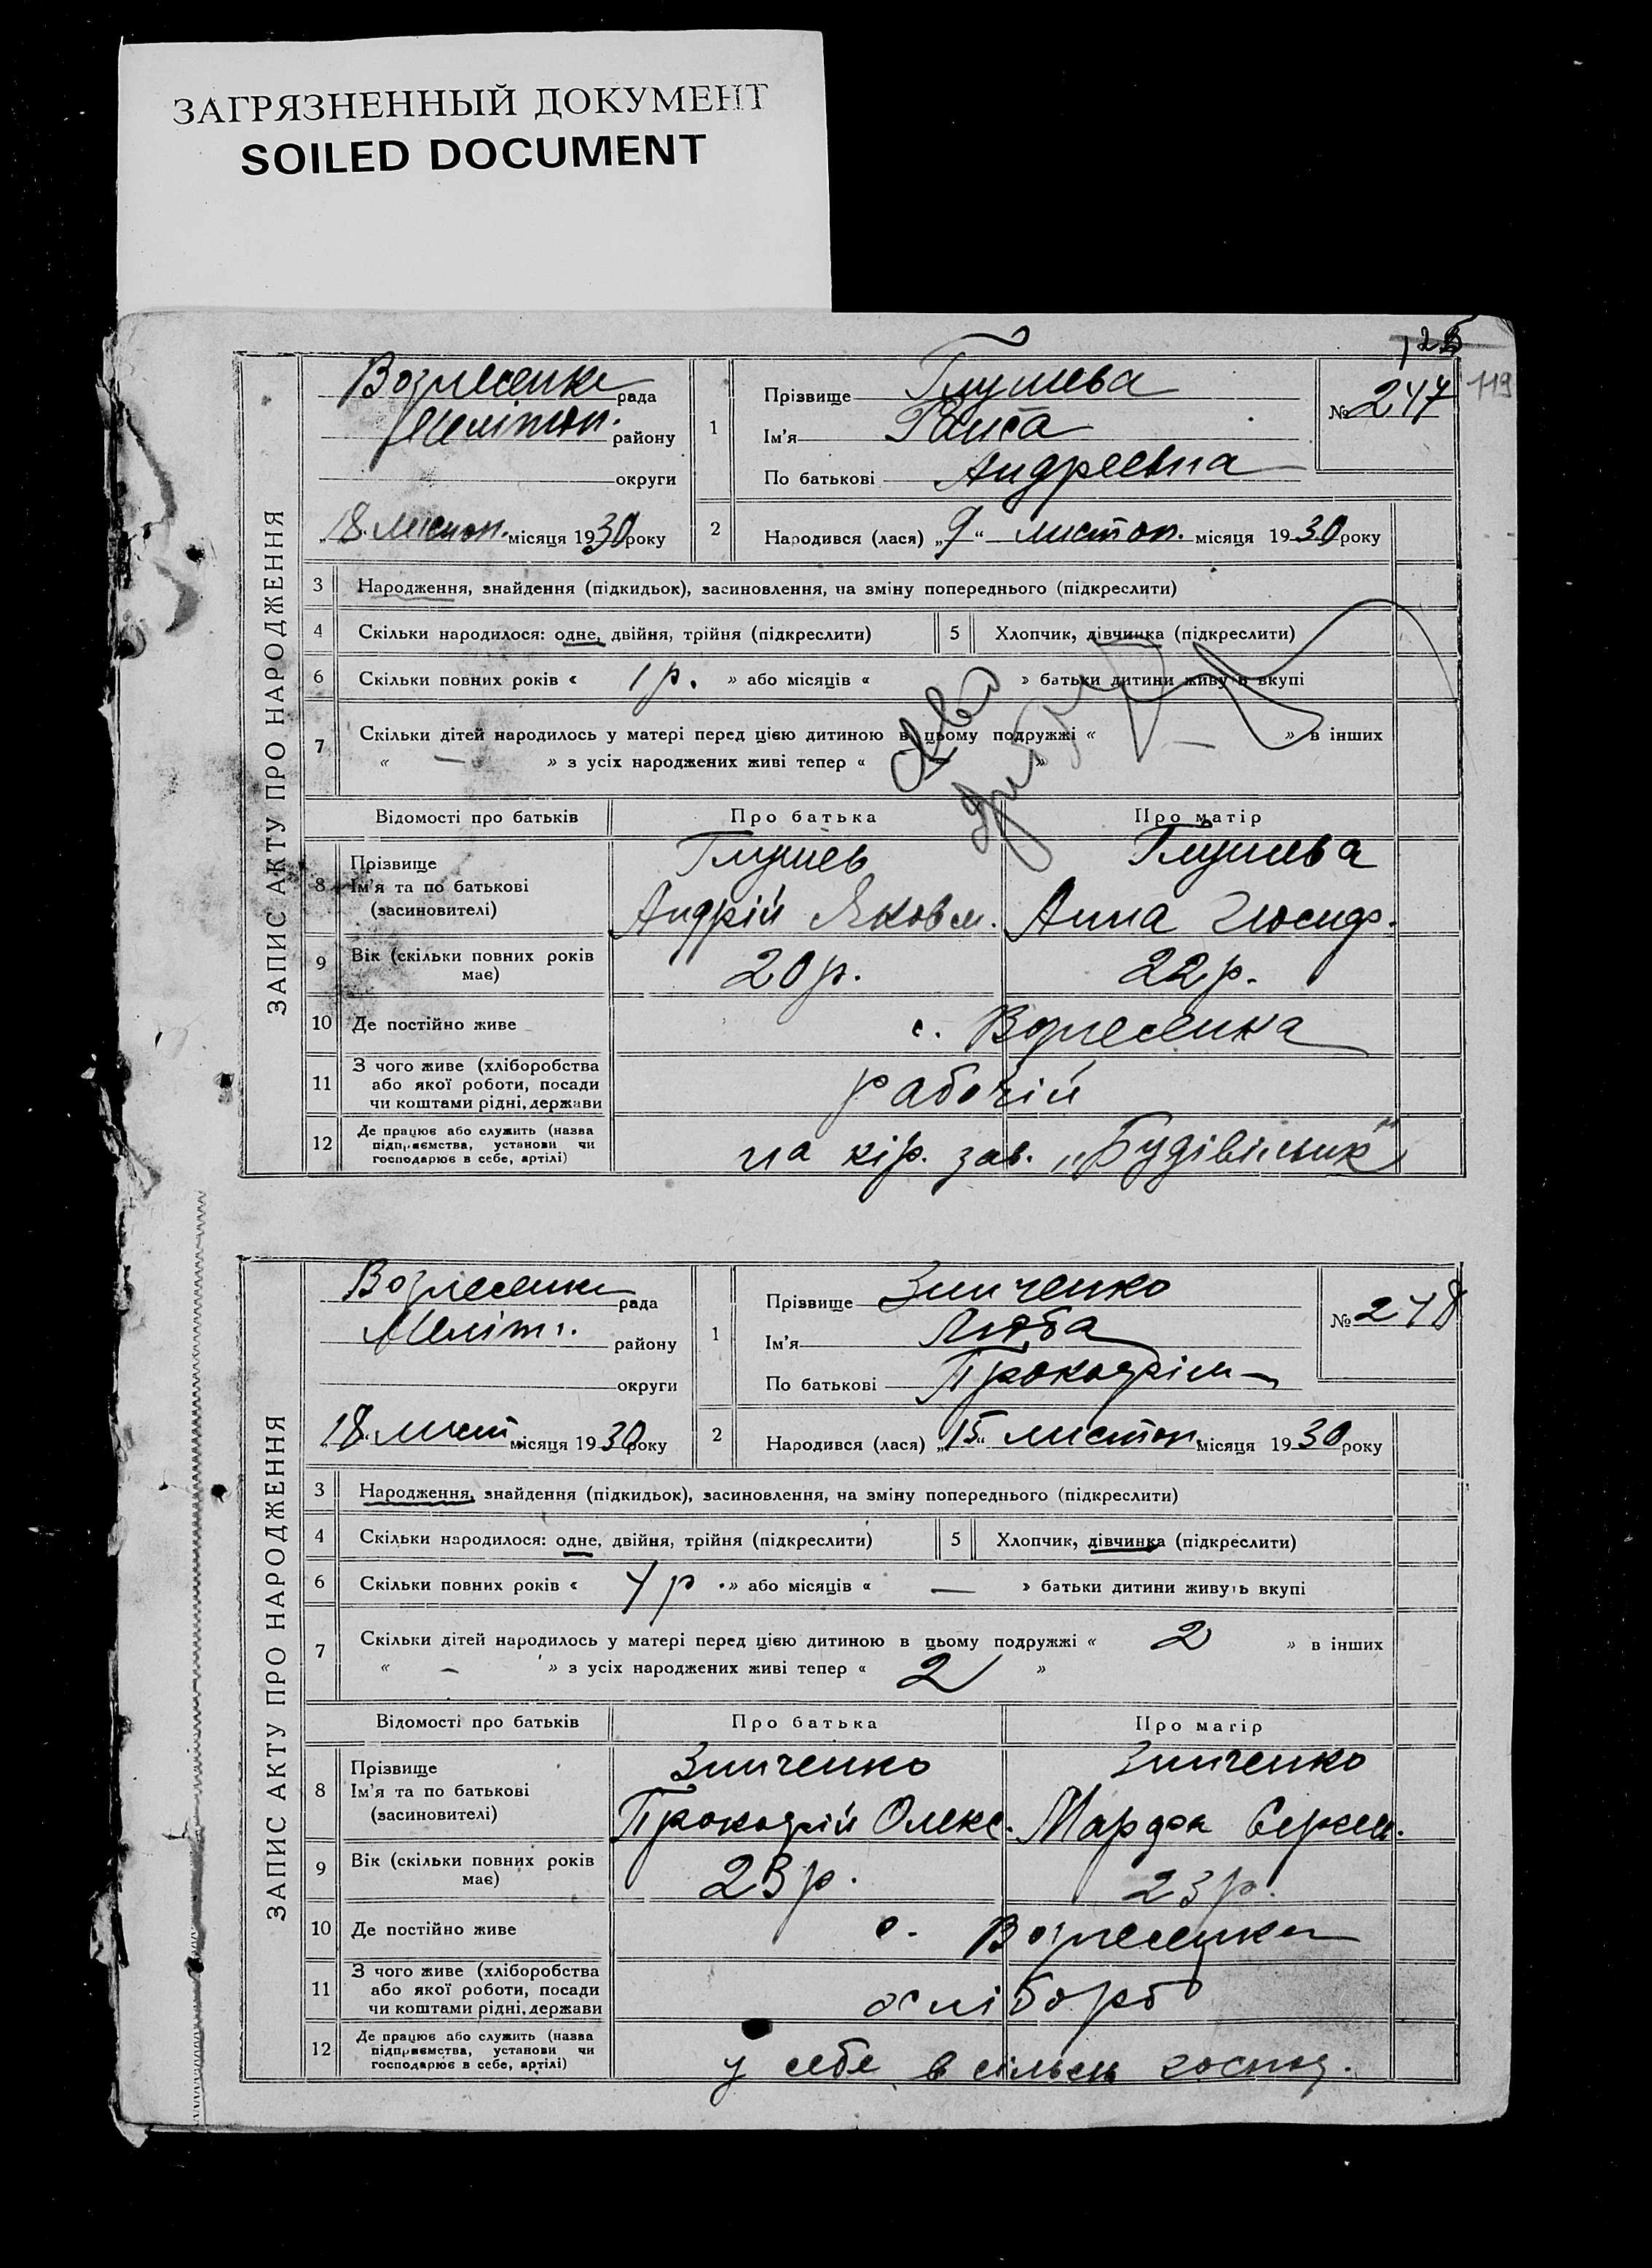 ЗАГРЯЗНЕННЫЙ ДОКУМЕНТ
SOILED DOCUMENT
119
ЗАПИС АКТУ ПРО НАРОДЖЕННЯ
Вознесенка рада
Мелітоп. району
округи
18 листоп. місяця 1930 року
1 Прізвище Глушева
Ім'я Раиса
По батькові Андреевна
№ 247
2 Народився (лася) „9“ листоп. місяця 1930 року
3 Народження, знайдення (підкидьок), засиновлення, на зміну попереднього (підкреслити)
4 Скільки народилося: одне, двійня, трійня (підкреслити) 5 Хлопчик, дівчинка (підкреслити)
6 Скільки повних років « 1 р. » або місяців « » батьки дитини живуть вкупі
7 Скільки дітей народилось у матері перед цією дитиною в цьому подружжі « — » в інших
« — » з усіх народжених живі тепер « »
Відомості про батьків Про батька Про матір
8 Прізвище Глушев Глушева
Ім'я та по батькові
(засиновителі) Андрій Яковл. Анна Иосиф.
9 Вік (скільки повних років має) 20 р. 22 р.
10 Де постійно живе с. Вознесенка
11 З чого живе (хліборобства
або якої роботи, посади
чи коштами рідні, держави рабочій
12 Де працює або служить (назва
підприємства, установи чи
господарює в себе, артілі) на кір. зав. „Будівільник“
ЗАПИС АКТУ ПРО НАРОДЖЕННЯ
Вознесенка рада
Меліт. району
округи
18 лист місяця 1930 року
1 Прізвище Зинченко
Ім'я Люба
По батькові Прокофіи
№ 248
2 Народився (лася) „15“ листоп місяця 1930 року
3 Народження, знайдення (підкидьок), засиновлення, на зміну попереднього (підкреслити)
4 Скільки народилося: одне, двійня, трійня (підкреслити) 5 Хлопчик, дівчинка (підкреслити)
6 Скільки повних років « 4 р. » або місяців « — » батьки дитини живуть вкупі
7 Скільки дітей народилось у матері перед цією дитиною в цьому подружжі « 2 » в інших
« — » з усіх народжених живі тепер « 2 »
Відомості про батьків Про батька Про матір
8 Прізвище Зинченко Зинченко
Ім'я та по батькові
(засиновителі) Прокофій Олекс. Марфа Сергеев.
9 Вік (скільки повних років має) 23 р. 23 р.
10 Де постійно живе с. Вознесенка
11 З чого живе (хліборобства
або якої роботи, посади
чи коштами рідні, держави хлібороб
12 Де працює або служить (назва
підприємства, установи чи
господарює в себе, артілі) у себе в сільськ господ.